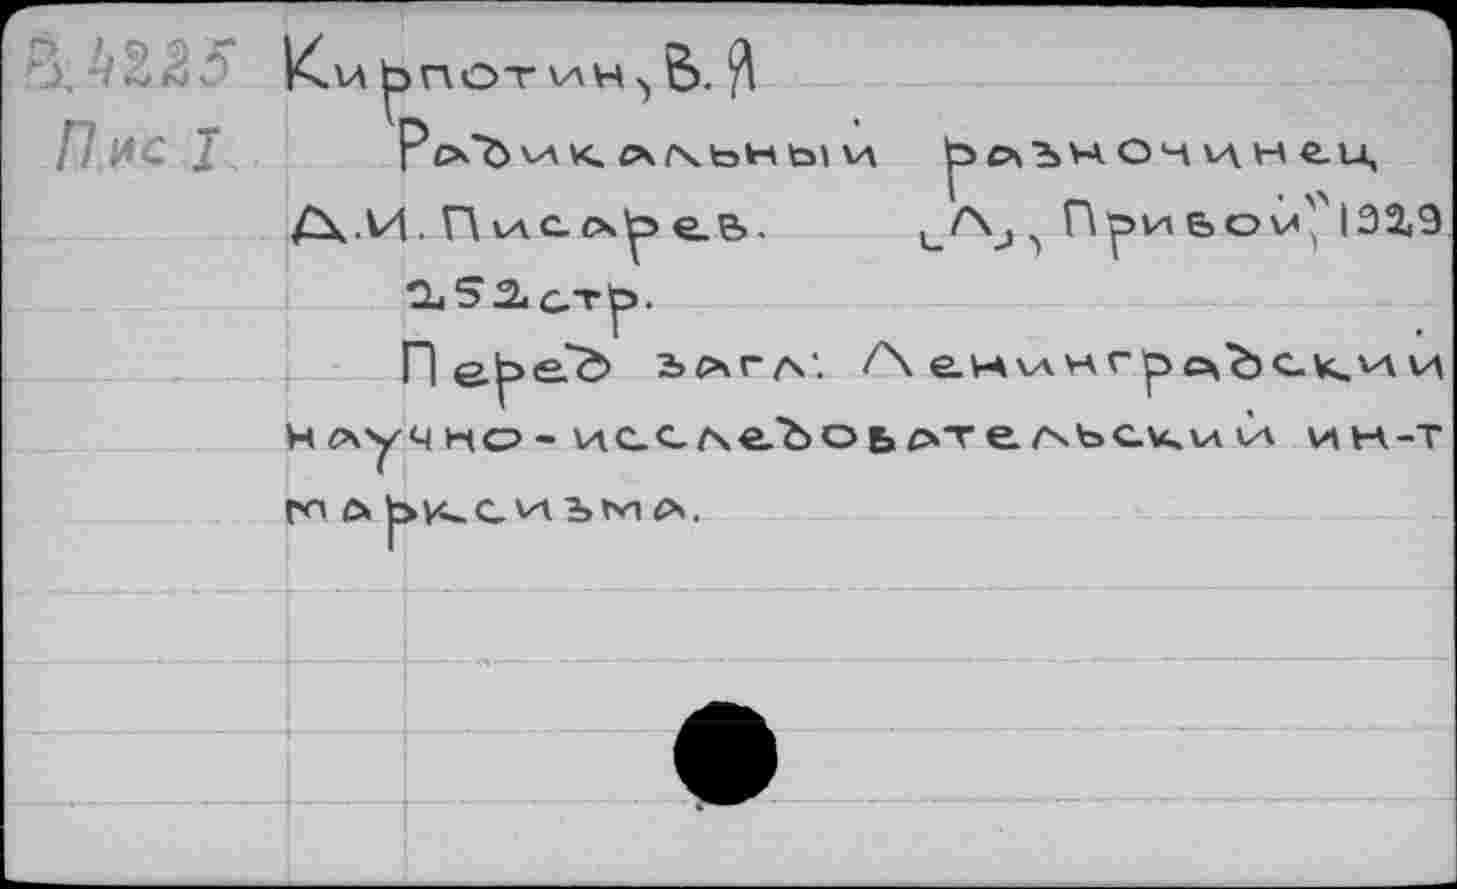 В.4225 Кирпотин, В. Я
Пис I. Радикальный разночинец
Д.И. Писарев. [Л], Прибой", 1929
252 стр.
Перед загл: Ленинградский
научно-исследовательский ин-т
марксизма.